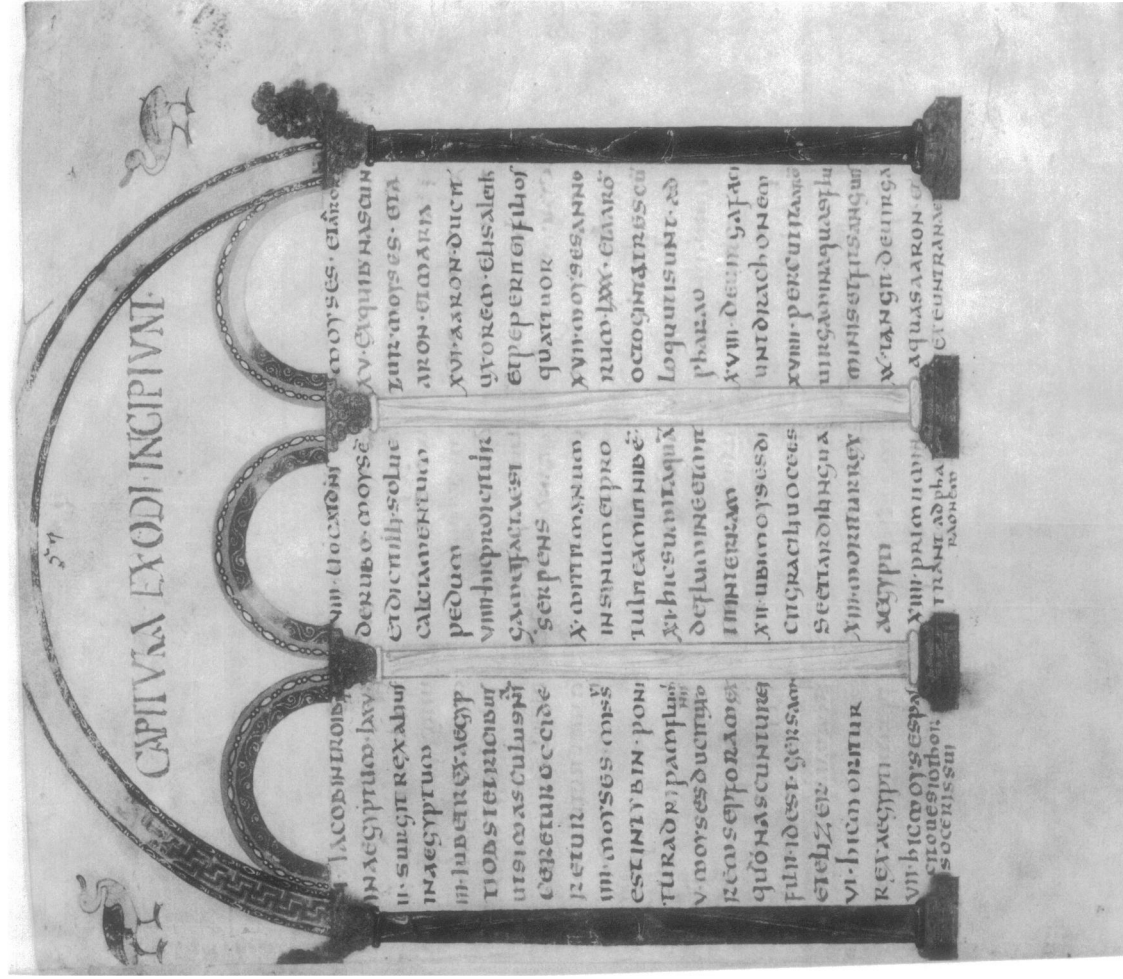 CAPITVLA EXODI INCIPIVNT
I · IACOB INTROIBIT
INAEGIPTUM · LXXV
II · SURGIT REX ALIUS
INAEGYPTUM
III · IUBET REX AEGYP
TI OBSTETRICIBUS
UT SI MASCULUS NAT
ERETUR OCCIDE
RETUR
IIII · MOYSES MISSUS
EST IN TYBIN · PONI
TUR AD RIPAM FLUMINI
V · MOYSES DUCIT UXO
REM SEPPORAM EX
QUO NASCUNTUR EI
FILII · IDEST · GERSAM
ET ELIZER
VI · HIC MORITUR
REX AEGYPTI
VII · HIC MOYSES PA
CIT OUES IOTHOR
SOCERI SUI
VIII · UOCAT DNI
DE RUBO · MOYSE
ET DICIT ILLI SOLUE
CALCIAMENTUM
PEDUM
VIIII · HIC PROICIT UIR
GAM ET FACTA EST
SERPENS
X · MITTIT MANUM
IN SINUM ET PRO
TULIT EAM
XI · HIC SUMIT AQUA
DE FLUMINE ET
IN TERRAM
XII · UBI MOYSES DI
CIT GRACILI UOCE ES
SE ET TARDI LINGUA
XIII · MORITUR REX
AEGYPTI
XIIII · PRIMUM
TRANT AD PHA
RAONEM
MOYSES · ET AARON
XV · EX QUIB NASCUN
TUR · MOYSES · ET A
ARON · ET MARIA
XVI · AARON · DUCIT
UXOREM · ELISABETH
ET PEPERIT EI FILIOS
QUATTUOR
XVII · MOYSES ANNO
RUM · LXXX · ET AARON
OCTOGINTA TRES CU
LOQUUTI SUNT · AD
PHARAO
XVIII · DE UIRGA FACI
UNT DRACHONEM
XVIIII · PERCUTIT AARON
UIRGA
XX · TANGIT · DE UIRGA
AQUAS AARON · ET
ET EUNT RANAE